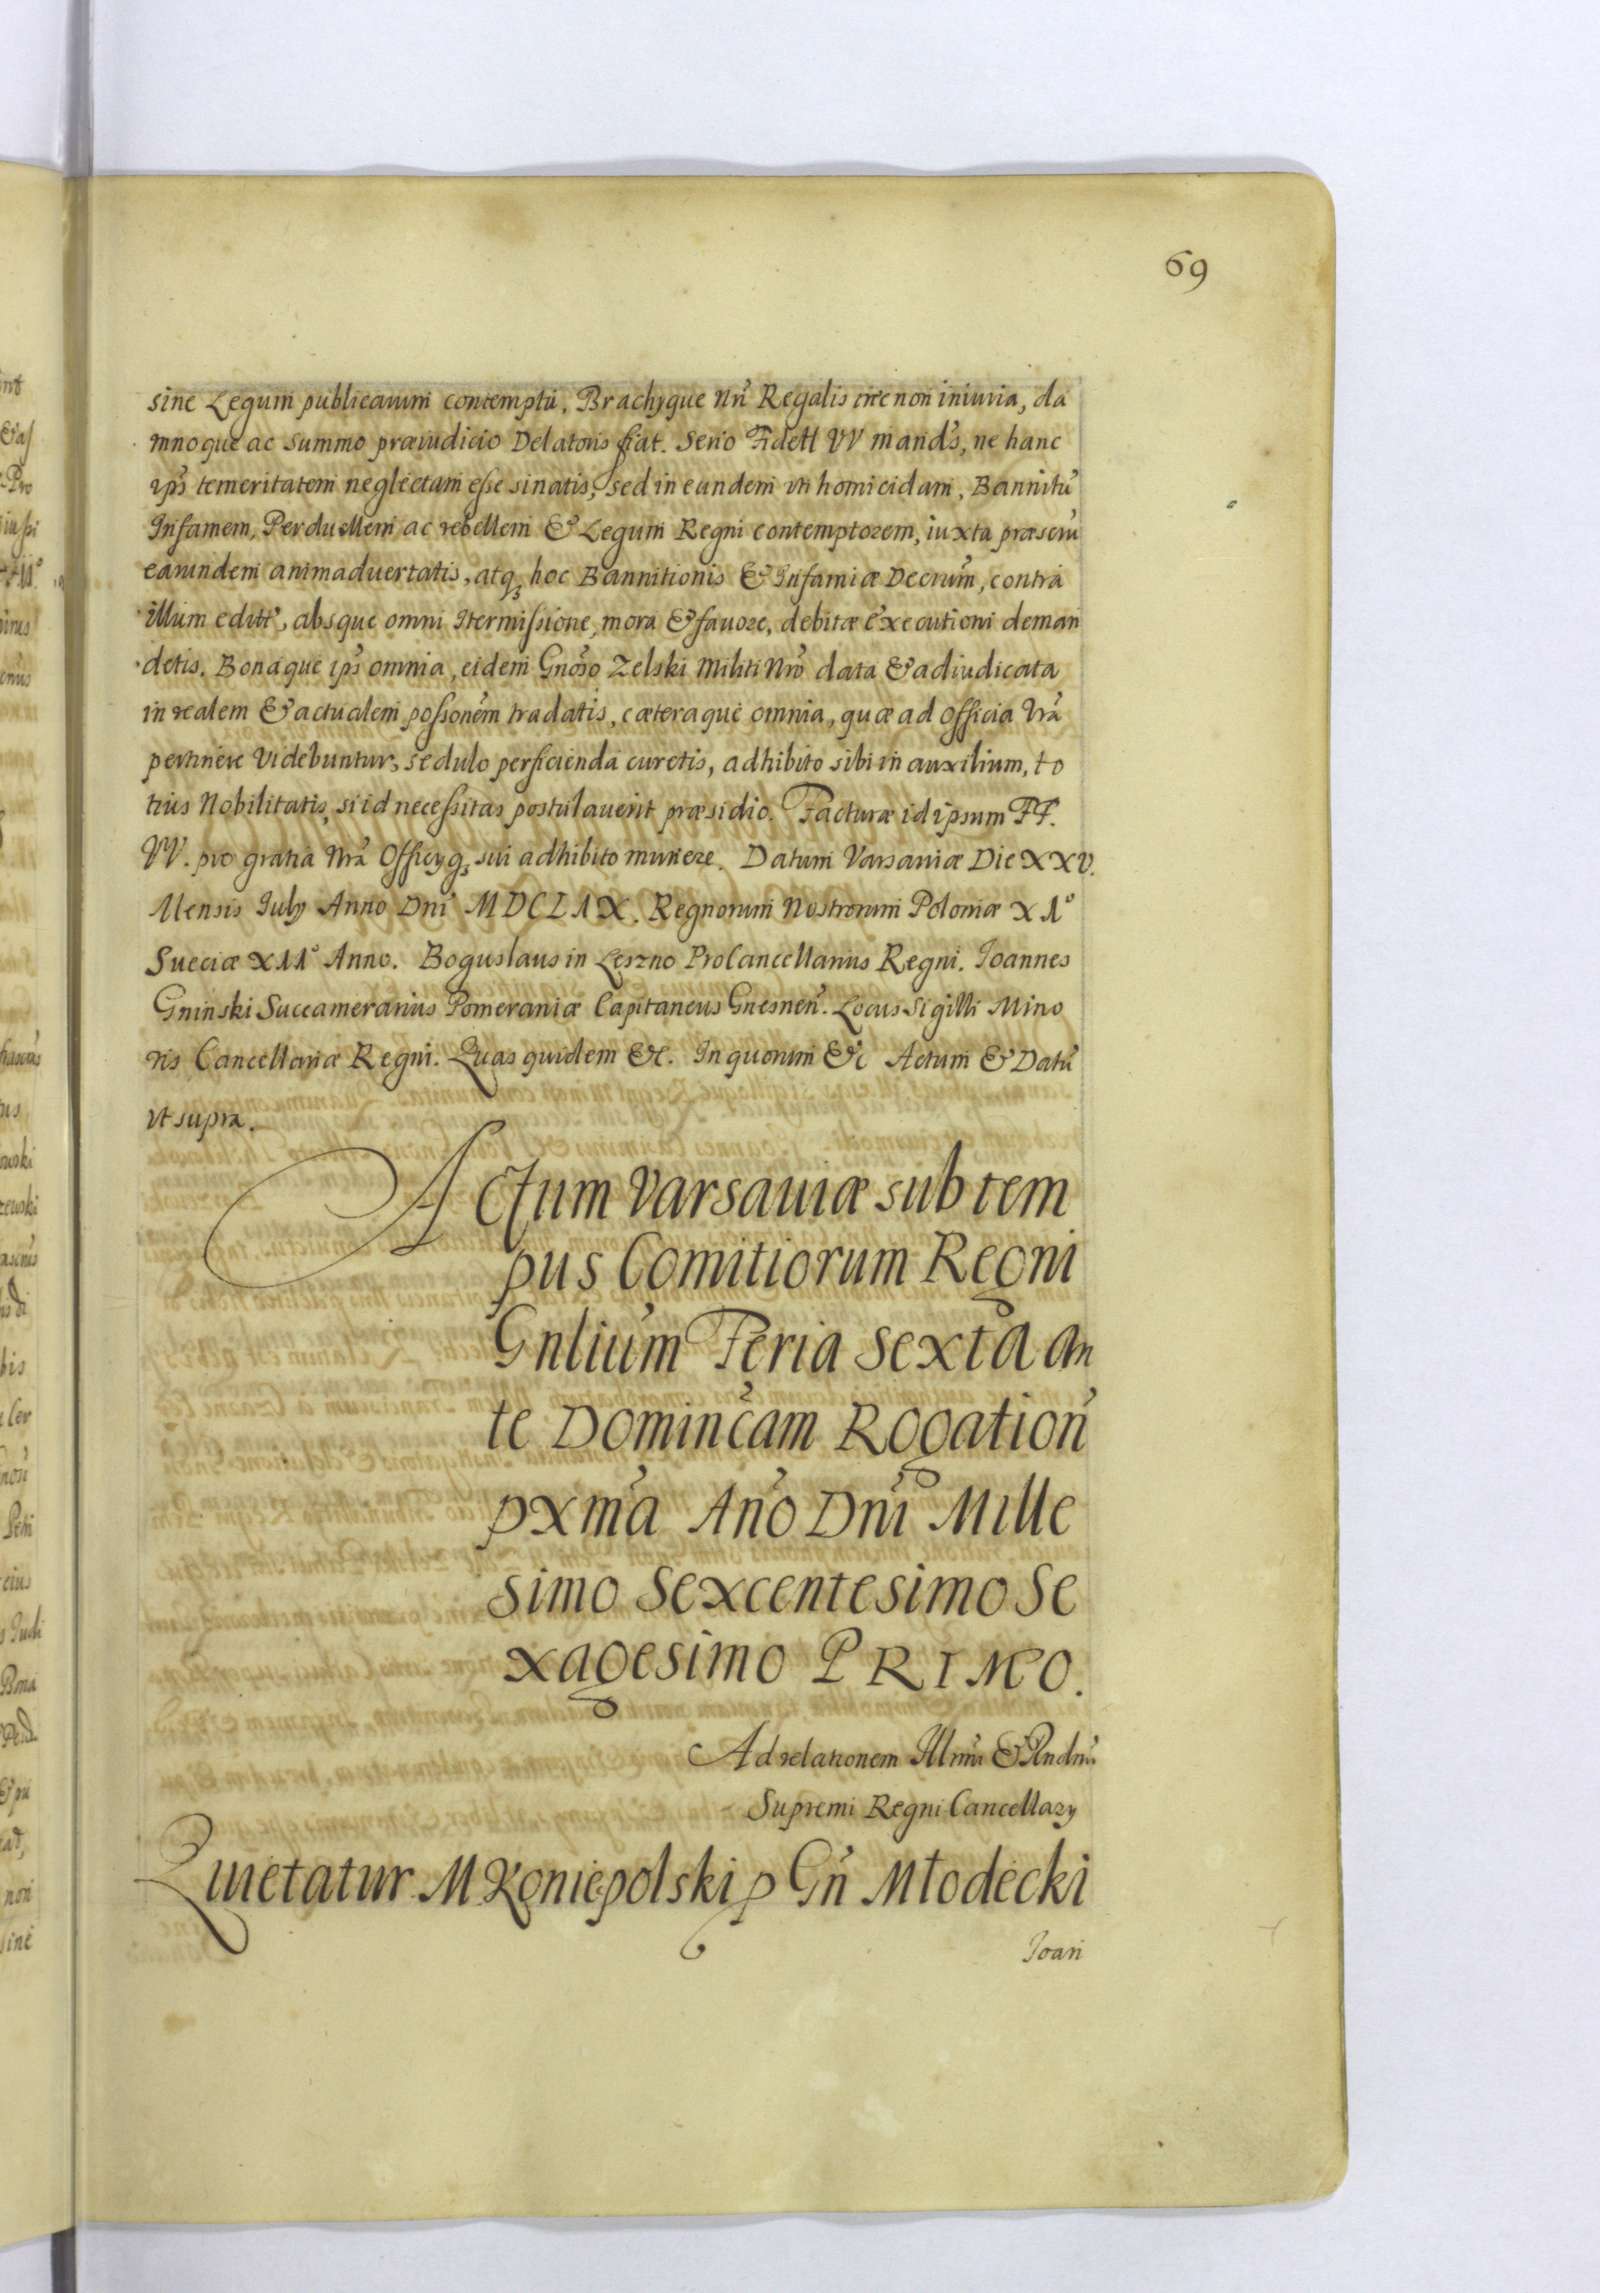 69
sine Legum publicarum contemptu, Brachyque Nri Regalis irre non iniuria, da
mnoque ac summo præiudicio Delatoris fiat. Serio Fidett VV mandˢ, ne hanc
ipˢ temeritatem neglectam esse sinatis, sed in eundem uti homicidam, Bannitū
Infamem, Perduellem ac rebellem & Legum Regni contemptorem, iuxta præscrū
earundem animaduertatis, atqꝫ hoc Bannitionis & Infamiæ Decrum̃, contra
illum editū, absque omni Itermissione, mora & fauore, debitæ executioni deman
detis. Bonaque ipˢ omnia, eidem Gnõso Zelski Militi Nrõ data & adiudicata
in realem & actualem possonẽm tradatis, cæteraque omnia, quæ ad Officia Vrã
pertinere videbuntur, sedulo perficienda curetis, adhibito sibi in auxilium, to
tius Nobilitatis, si id necessitas postulauerit præsidio. Facturæ id ipsum FF.
VV. pro gratia Nrã Officyqꝫ sui adhibito munere. Datum Varsauiæ Die XXV.
Mensis July Anno Dni MDCLIX. Regnorum Nostrorum Poloniæ XI°
Sueciæ XII° Anno. Boguslaus in Leszno ProCancellarius Regni. Ioannes
Gninski Succamerarius Pomeraniæ Capitaneus Gnesneñ. Locus Sigilli Mino
ris Cancellariæ Regni. Quas quidem &c. In quorum &c Actum & Datū
ut supra.
Actum Varsauiæ sub tem
pus Comitiorum Regni
Gnlium Feria Sexta an
te Domincam Rogation̄
pxma Ano Dni Mille
simo Sexcentesimo Se
xagesimo PRIMO.
Ad relationem Illmi & Rndmi
Supremi Regni Cancellary
Quietatur M Koniecpolski p Gn̄ Młodecki
Ioan